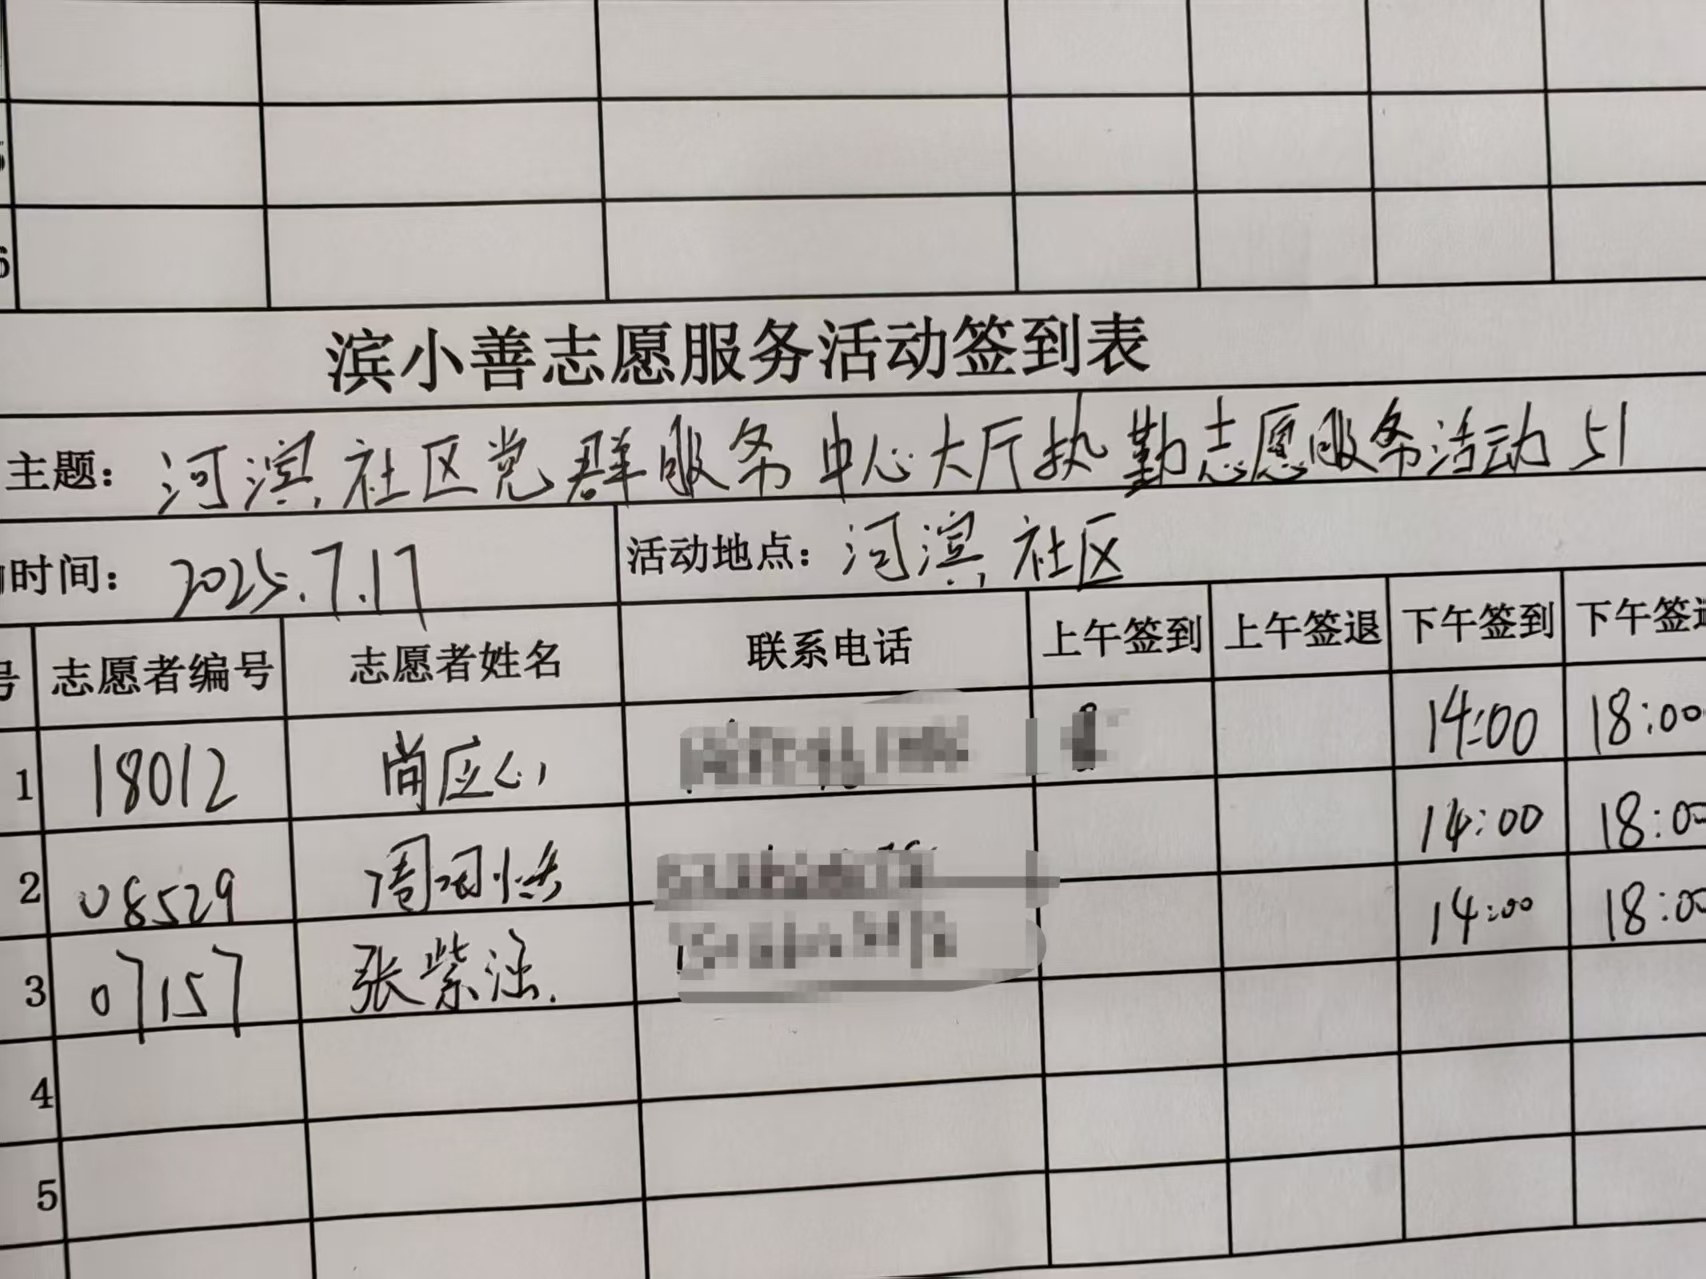 6
滨小善志愿服务活动签到表
主题：河滨社区党群服务中心大厅执勤志愿服务活动51
时间：2025.7.17 活动地点：河滨社区
号 志愿者编号 志愿者姓名 联系电话 上午签到 上午签退 下午签到 下午签退
1 18012 尚应心 14:00 18:00
2 08529 周 14:00 18:00
3 07157 张紫涵 14:00 18:00
4
5